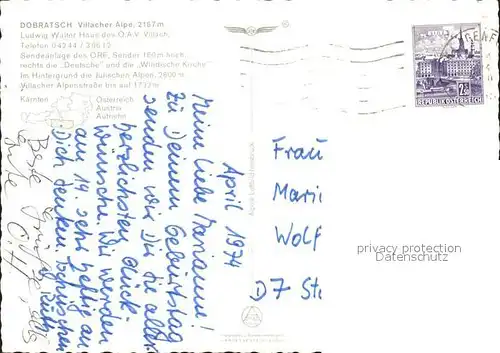 DOBRATSCH Villacher Alpe, 2167 m
Ludwig Walter Haus des Ö.A.V. Villach,
Telefon 04244 /
Sendeanlage des ORF, Sender 160 m hoch
rechts die "Deutsche" und die "Windische Kirche"
Im Hintergrund die Julischen Alpen, 2800 m
Villacher Alpenstraße bis auf 1732 m
Kärnten
Österreich
Austria
Autriche
April 1974
Meine liebe Mariann!
Zu Deinem Geburtstag
senden wir Dir die aller
herzlichsten Glück
wünsche. Wir werden
am 14. sehr heftig an
Dich denken.
Beste Grüße
Grüße
Ruth
REPUBLIK ÖSTERREICH
Frau
Marii
Wolf
D 7 St
privacy protection
Datenschutz